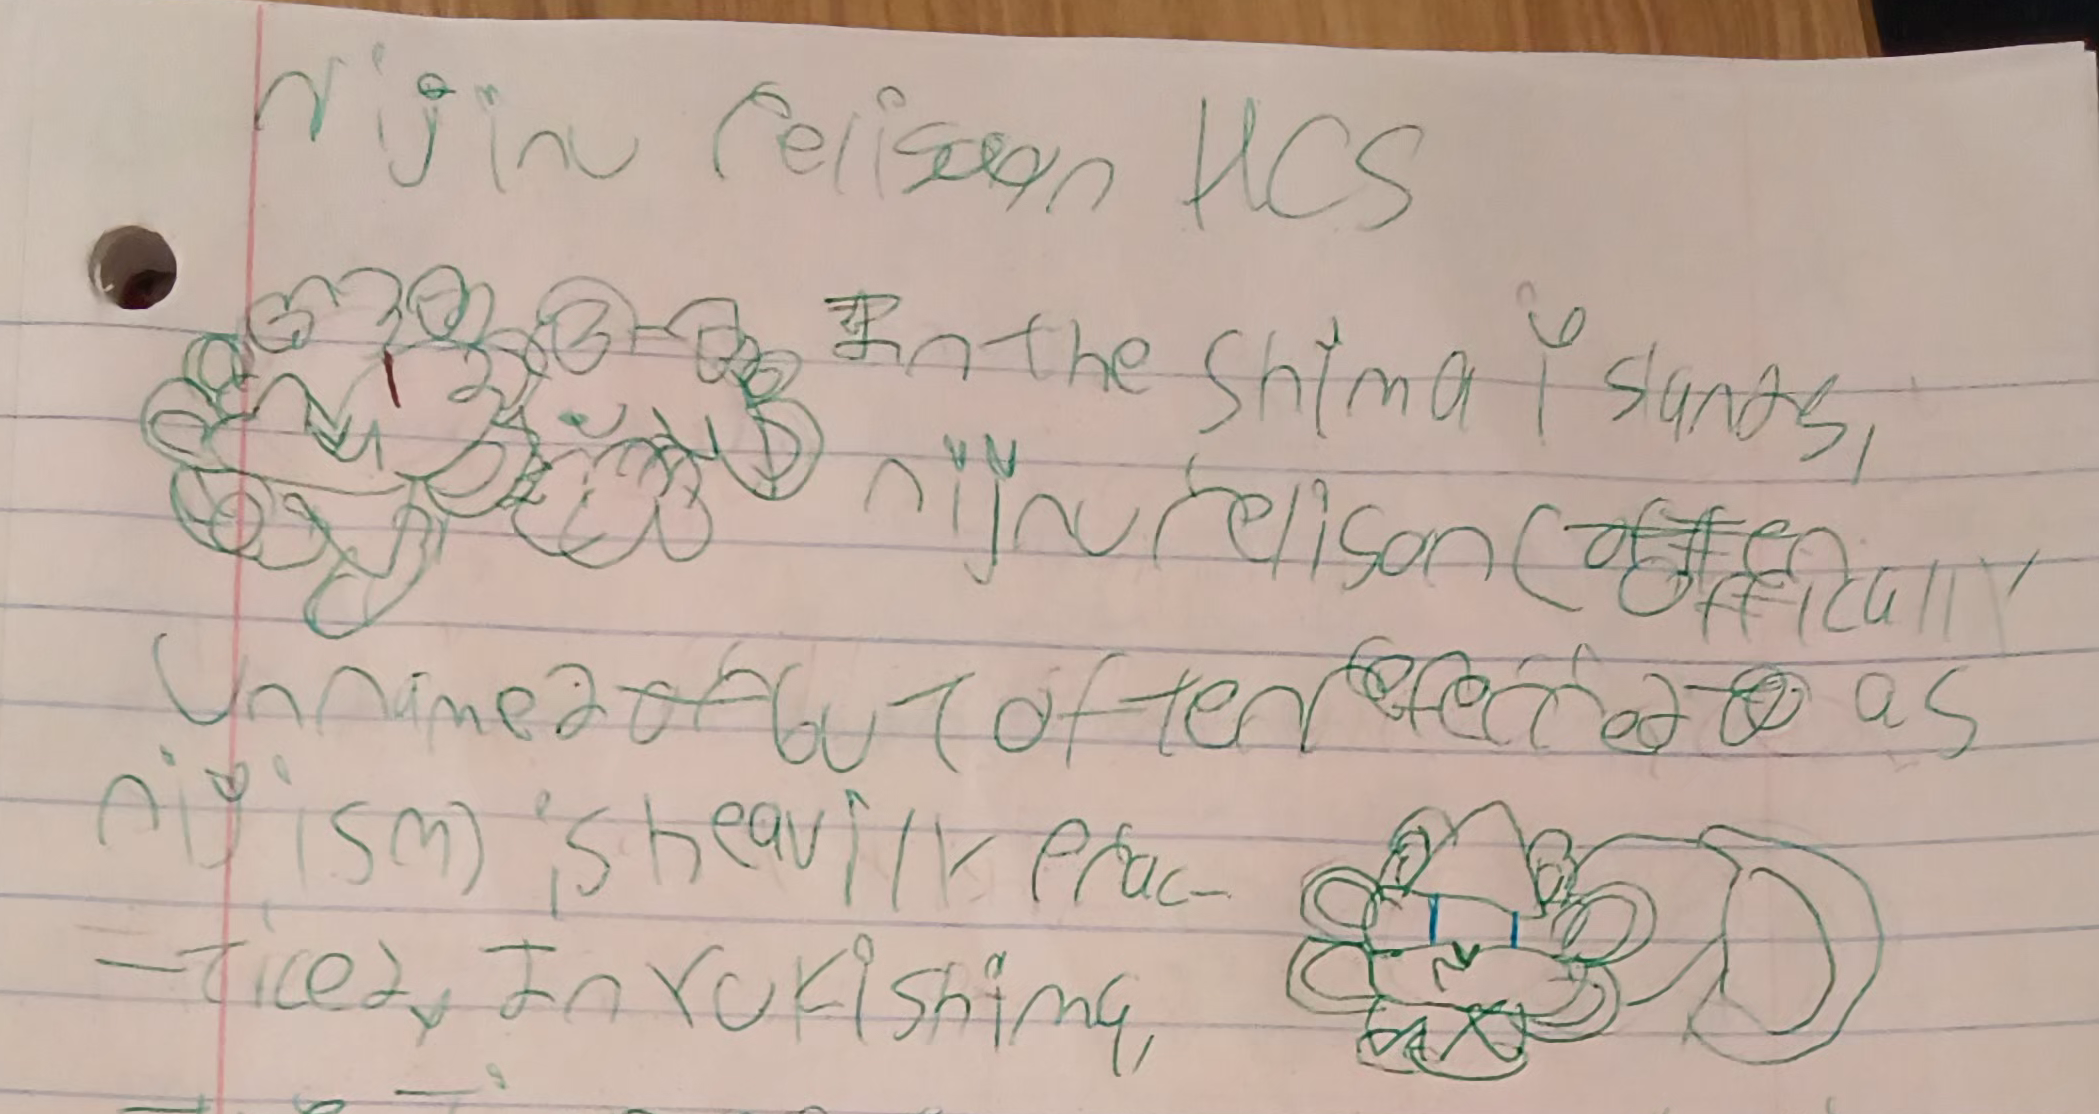 Nijinu relison HCS
In the Shima islands,
nijnu relison (often offically
Unnamed of but often referred to as
nijiism) is heavily prac-
-ticed, In Yukishima,